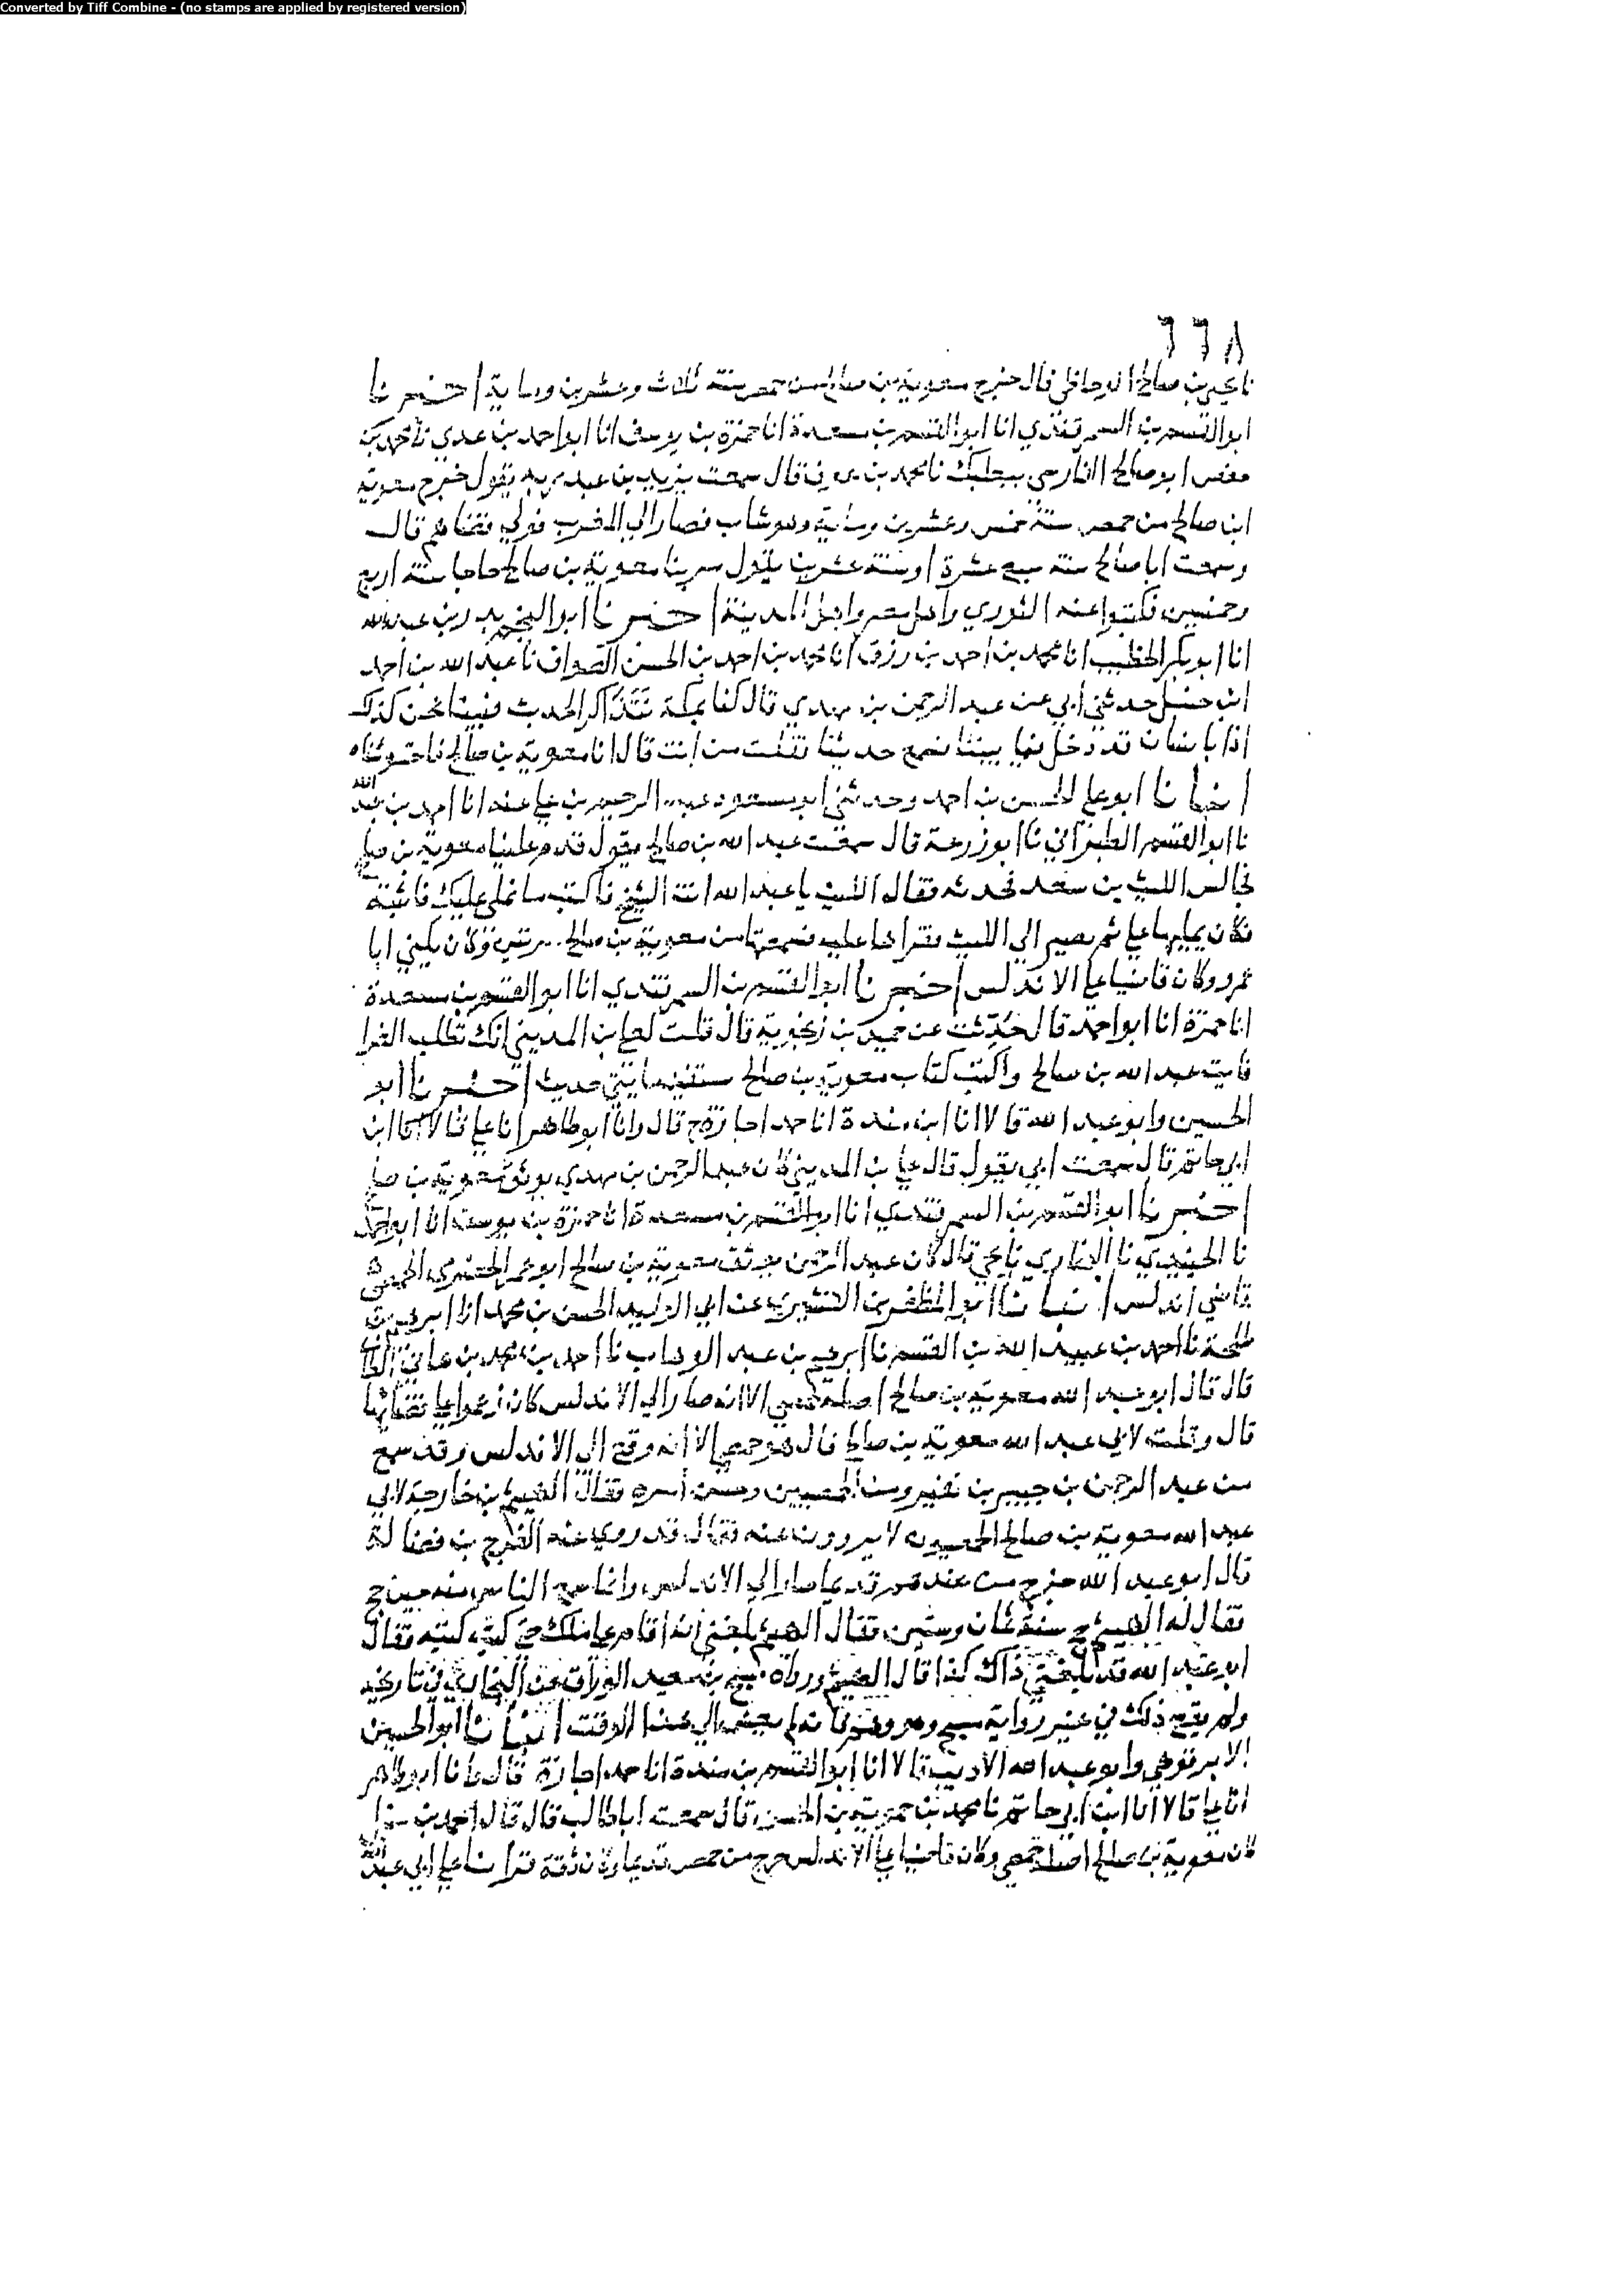 Converted by Tiff Combine - (no stamps are applied by registered version)
٦٦٨
نا يحيى بن صالح الوحاظي قال خرج معوية بن صالح من حمص سنة ثلاث وعشرين وماية اخبرنا
ابو القسم بن السمرقندي انا ابو القسم بن مسعدة انا حمزة بن يوسف انا ابو احمد بن عدي نا محمد بن
ابو صالح الفارسي ببعلبك نا محمد بن عوف قال سمعت يزيد بن عبد ربه يقول خرج معوية
ابن صالح من حمص سنة خمس وعشرين وماية وهو شاب فصار الى المغرب فولي قضاهم قال
وسمعت ابا صالح سنة سبع عشرة او سنة عشرين يقول مر بنا معوية بن صالح حاجا سنة اربع
وخمسين فكتب عنه الثوري واهل مصر واهل المدينة اخبرنا ابو النجم بدر بن عبد الله
انا ابو بكر الخطيب انا محمد بن احمد بن رزق انا محمد بن احمد بن الحسن الصواف نا عبد الله بن احمد
ابن حنبل حدثني ابي عن عبد الرحمن بن مهدي قال كنا بمكة نتذاكر الحديث فبينا نحن كذلك
اذا بانسان قد دخل فيما بيننا نسمع حديثنا فقلت من انت قال انا معوية بن صالح فاحتوشناه
انبانا ابو علي الحسن بن احمد وحدثني ابو مسعود عبد الرحيم بن علي عنه انا احمد بن عبد الله
نا ابو القسم الطبراني نا ابو زرعة قال سمعت عبد الله بن صالح يقول قدم علينا معوية بن صالح
فجالس الليث بن سعد فحدثه فقال الليث يا عبد الله ائت الشيخ فاكتب ما يملي عليك فاتيته
فكان يمليها علي ثم نصير الى الليث فنقراها عليه فسمعتها من معوية بن صالح مرتين وكان يكنى ابا
عمرو وكان قاضيا على الاندلس اخبرنا ابو القسم بن السمرقندي انا ابو القسم بن مسعدة
انا حمزة انا ابو احمد قال حُدّثت عن حميد بن زنجوية قال قلت لعلي بن المديني انك تطلب الغرا
فايت عبد الله بن صالح واكتب كتاب معوية بن صالح تستفيد مايتي حديث اخبرنا ابو
الحسين وابو عبد الله قالا انا ابن مندة انا حمد اجازة ح قال وانا ابو طاهر انا علي قالا انا ابن
ابي حاتم قال سمعت ابي يقول قال علي بن المديني كان عبد الرحمن بن مهدي يوثق معوية بن صالح
اخبرنا ابو القسم بن السمرقندي انا ابو القسم بن مسعدة انا حمزة بن يوسف انا ابو احمد
نا الجنيدي نا البخاري نا يحيى قال كان عبد الرحمن يوثق معوية بن صالح ابو عمرو الحضرمي الحمصي
قاضي اندلس انبانا ابو المظفر بن القشيري عن ابي الوليد الحسن بن محمد انا ابرهيم بن
طلحة نا احمد بن عبيد الله بن القسم نا ابرهيم بن عبد الوهاب نا احمد بن محمد بن هاني
قال قال ابو عبد الله معوية بن صالح اصله حمصي الا انه صار الى الاندلس كان زعموا على قضائها
قال وقلت لابي عبد الله معوية بن صالح قال هو حمصي الا انه وقع الى الاندلس وقد سمع
من عبد الرحمن بن جبير بن نفير ومن الحمصيين وحسن امره فقال الهيثم بن خارجة لابي
عبد الله معوية بن صالح الحمصيون لا يروون عنه فقال قد روى عنه الفرج بن فضالة
قال ابو عبد الله خرج من عندهم قديما صار الى الاندلس وانما سمع الناس منه حين حج
فقال له الهيثم حج سنة ثمان وستين فقال الهيثم بلغني انه اقام على مالك حتى كتب كتبه فقال
ابو عبد الله قد بلغني ذاك كذا قال الهيثم ورواه مسبح بن سعيد الوراق عن البخاري في تاريخه
ولم يقع ذلك في غير رواية مسبح وهو وهم فانه لم يعش الى هذا الوقت انبانا ابو الحسين
الابرقوهي وابو عبد الله الاديب قالا انا ابو القسم بن مندة انا حمد اجازة قال وانا ابو طاهر
انا علي قالا انا ابن ابي حاتم نا محمد بن حموية بن الحسن قال سمعت ابا طالب قال قال احمد بن
كان معوية بن صالح اصله حمصي وكان قاضيا على الاندلس خرج من حمص قديما وكان ثقة قرات على ابي عبد الله